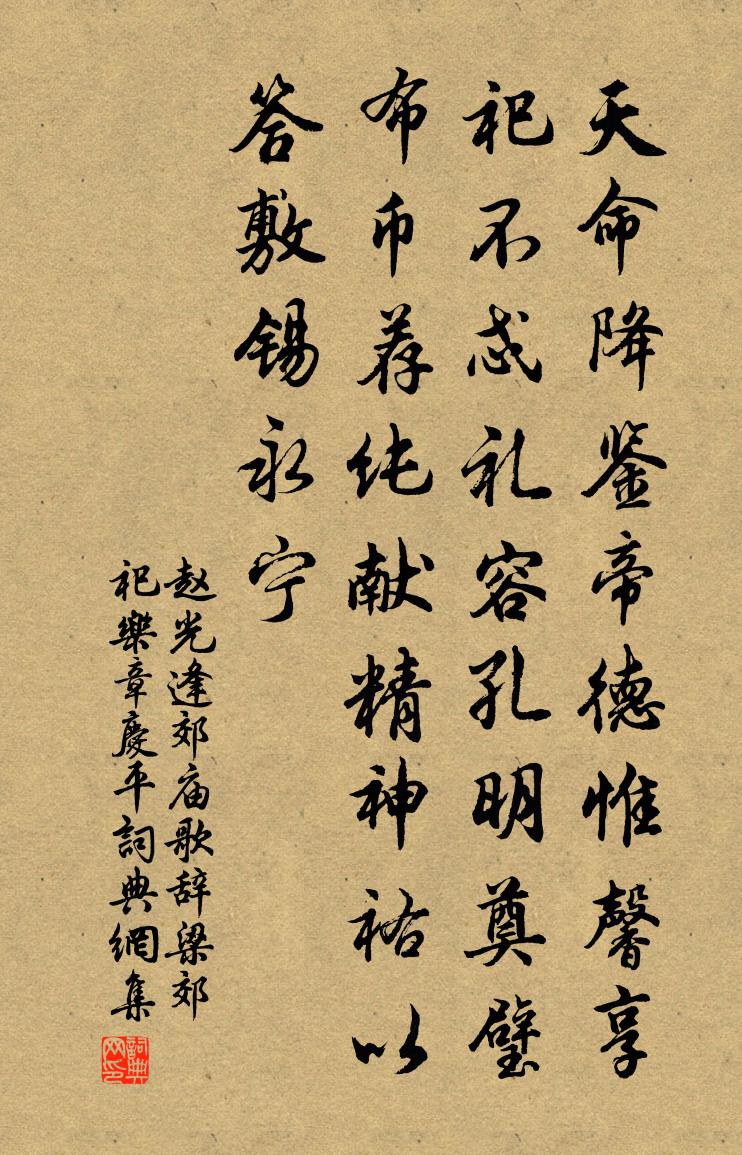 天命降鉴帝德惟馨享
祀不忒礼容孔明奠璧
布币荐纯献精神祐以
答敷锡永宁
赵光逢郊庙歌辞梁郊
祀樂章慶平詞典網集
詞典网印